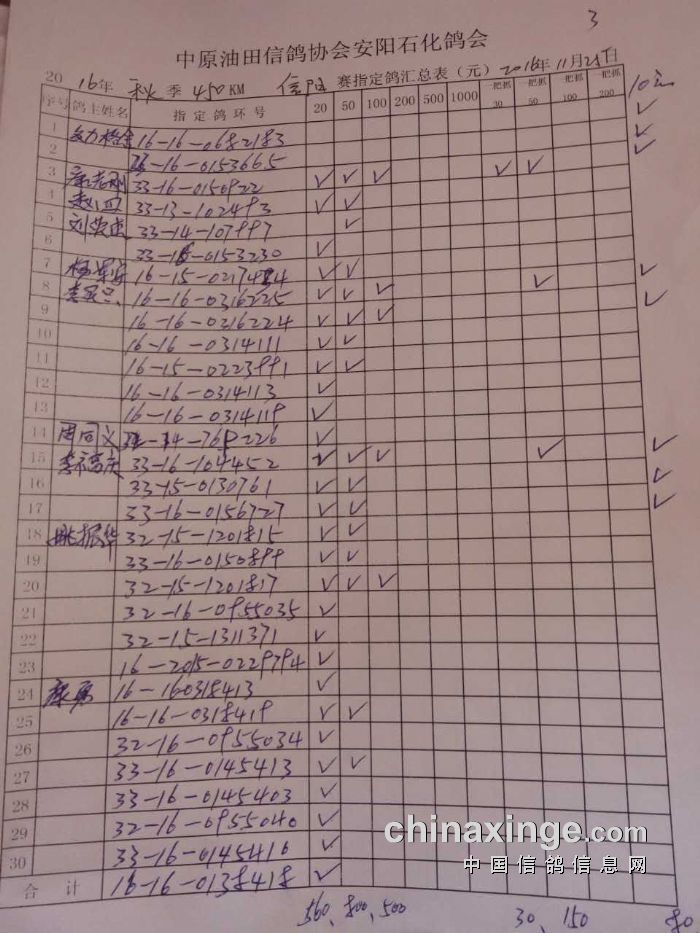 3
中原油田信鸽协会安阳石化鸽会
2016年 秋季 450KM 信阳 赛指定鸽汇总表（元）2016年11月25日
序号 鸽主姓名 指定鸽环号 20 50 100 200 500 1000 一把抓30 一把抓50 一把抓100 一把抓200 10元
✓
1 16-16-0682183 ✓
2 33-16-0153665 ✓
3 33-16-0150922 ✓ ✓ ✓ ✓ ✓
4 赵小四 33-13-102493 ✓ ✓
5 33-14-107997 ✓
6 33-16-0153230 ✓
7 16-15-0217484 ✓ ✓ ✓
8 16-16-0316225 ✓ ✓ ✓ ✓ ✓
9 16-16-0316224 ✓ ✓ ✓
10 16-16-0314111 ✓ ✓
11 16-15-0223991 ✓ ✓
12 16-16-0314113 ✓
13 16-16-0314119 ✓
14 周同义 -14-769226 ✓
15 33-16-104452 ✓ ✓ ✓ ✓ ✓
16 33-15-0130761 ✓ ✓ ✓
17 33-16-0156727 ✓ ✓ ✓
18 姚振华 32-15-1201815 ✓ ✓
19 33-16-0150899 ✓ ✓
20 32-15-1201817 ✓ ✓ ✓
21 32-16-0955035 ✓
22 32-15-1311371 ✓
23 16-2015-0229794 ✓
24 16-160318413 ✓
25 16-16-0318419 ✓ ✓
26 32-16-0955034 ✓
27 33-16-0145413 ✓ ✓
28 33-16-0145403 ✓
29 32-16-0955040 ✓
30 33-16-0145410 ✓
合计 16-16-0138418 ✓
560、800、500 30、150 80
chinaxinge.com
中国信鸽信息网